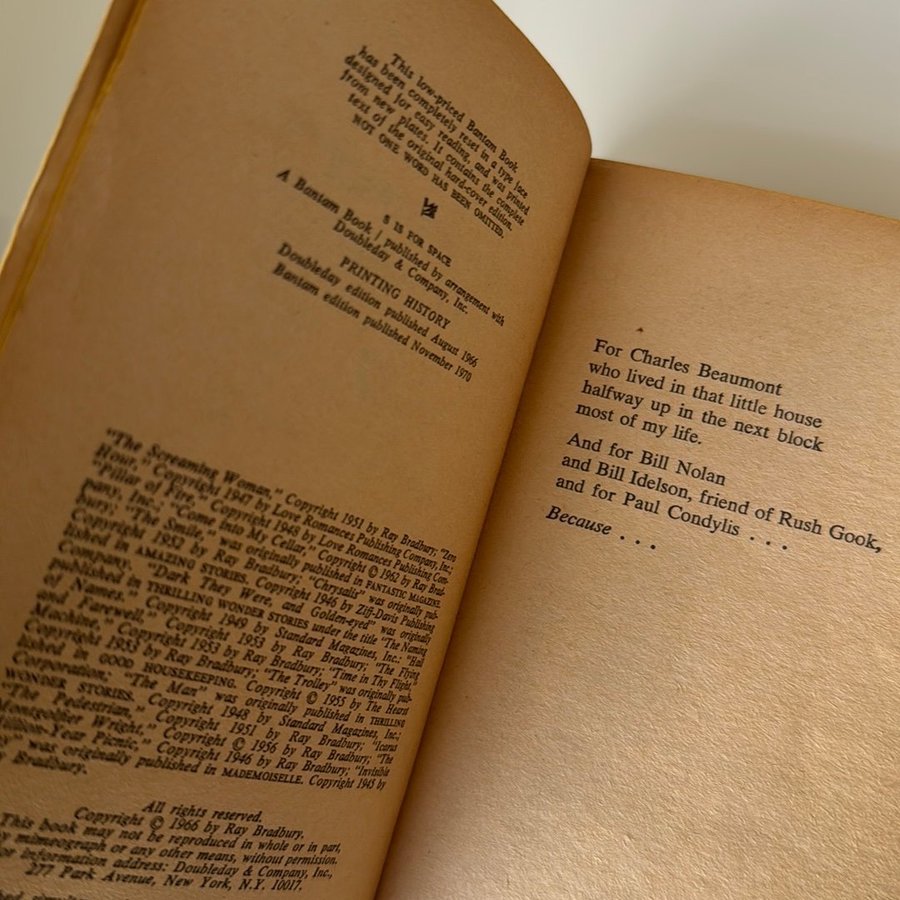 This low-priced Bantam Book
has been completely reset in a type face
designed for easy reading, and was printed
from new plates. It contains the complete
text of the original hard-cover edition.
NOT ONE WORD HAS BEEN OMITTED.
S IS FOR SPACE
A Bantam Book / published by arrangement with
Doubleday & Company, Inc.
PRINTING HISTORY
Doubleday edition published August 1966
Bantam edition published November 1970
"The Screaming Woman," Copyright 1951 by Ray Bradbury; "Zero
Hour," Copyright 1947 by Love Romances Publishing Company, Inc.;
"Pillar of Fire," Copyright 1948 by Love Romances Publishing Com-
pany, Inc.; "Come into My Cellar," Copyright © 1962 by Ray Brad-
bury; "The Smile," was originally published in FANTASTIC MAGAZINE.
Copyright 1952 by Ray Bradbury; "Chrysalis" was originally pub-
lished in AMAZING STORIES. Copyright 1946 by Ziff-Davis Publishing
Company, "Dark They Were, and Golden-eyed" was originally
published in THRILLING WONDER STORIES under the title "The Naming
of Names." Copyright 1949 by Standard Magazines, Inc.; "Hail
and Farewell," Copyright 1953 by Ray Bradbury; "The Flying
Machine," Copyright 1953 by Ray Bradbury; "Time in Thy Flight,"
Copyright 1953 by Ray Bradbury; "The Trolley" was originally pub-
lished in GOOD HOUSEKEEPING. Copyright © 1955 by The Hearst
Corporation; "The Man" was originally published in THRILLING
WONDER STORIES. Copyright 1948 by Standard Magazines, Inc.;
"The Pedestrian," Copyright 1951 by Ray Bradbury; "Icarus
Montgolfier Wright," Copyright © 1956 by Ray Bradbury; "The
Million-Year Picnic," Copyright 1946 by Ray Bradbury; "Invisible
" was originally published in MADEMOISELLE. Copyright 1945 by
Bradbury.
All rights reserved.
Copyright © 1966 by Ray Bradbury.
This book may not be reproduced in whole or in part,
by mimeograph or any other means, without permission.
For information address: Doubleday & Company, Inc.,
277 Park Avenue, New York, N.Y. 10017.
For Charles Beaumont
who lived in that little house
halfway up in the next block
most of my life.
And for Bill Nolan
and Bill Idelson, friend of Rush Gook,
and for Paul Condylis . . .
Because . . .